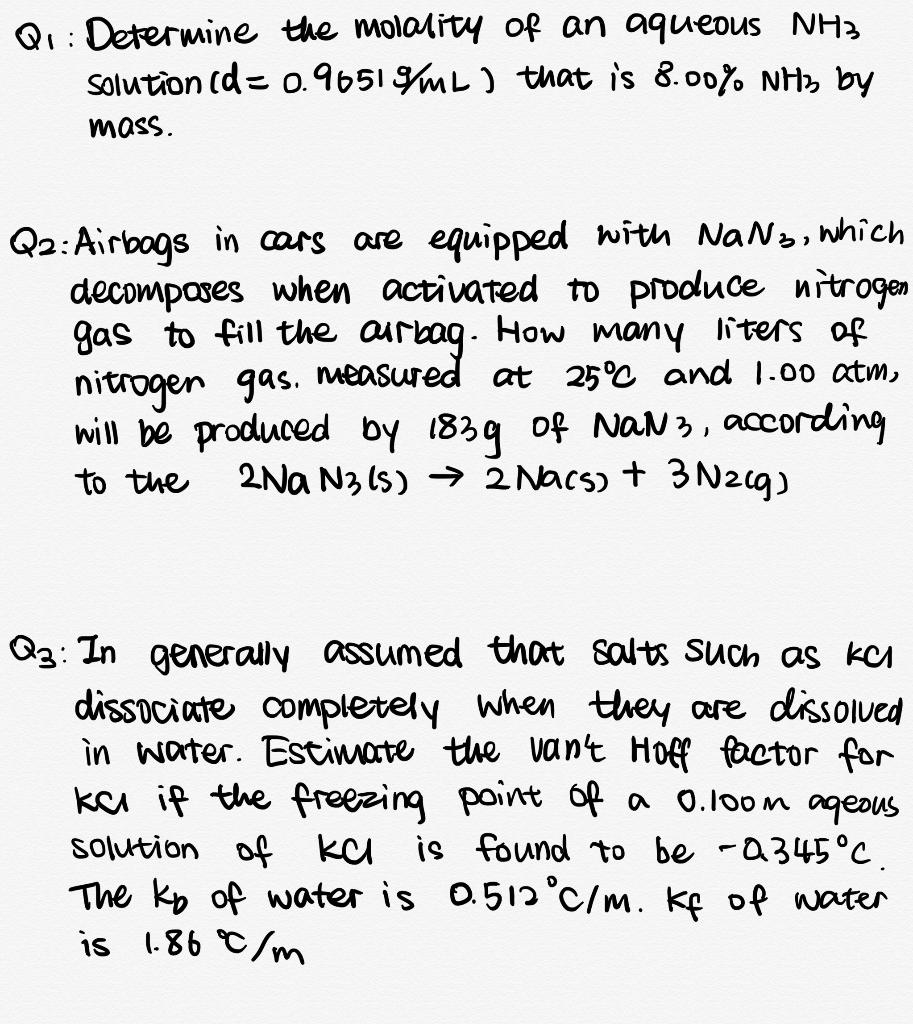 Q1: Determine the molality of an aqueous NH3
solution (d= 0.9651 g/mL) that is 8.00% NH3 by
mass.
Q2: Airbags in cars are equipped with NaN3, which
decomposes when activated to produce nitrogen
gas to fill the airbag. How many liters of
nitrogen gas. measured at 25°C and 1.00 atm,
will be produced by 183g of NaN3, according
to the 2NaN3(s) → 2Na(s) + 3N2(g)
Q3: In generally assumed that salts such as KCl
dissociate completely when they are dissolved
in water. Estimate the van't Hoff factor for
KCl if the freezing point of a 0.100m aqeous
solution of KCl is found to be -0.345°C.
The Kb of water is 0.512°C/m. Kf of water
is 1.86 °C/m